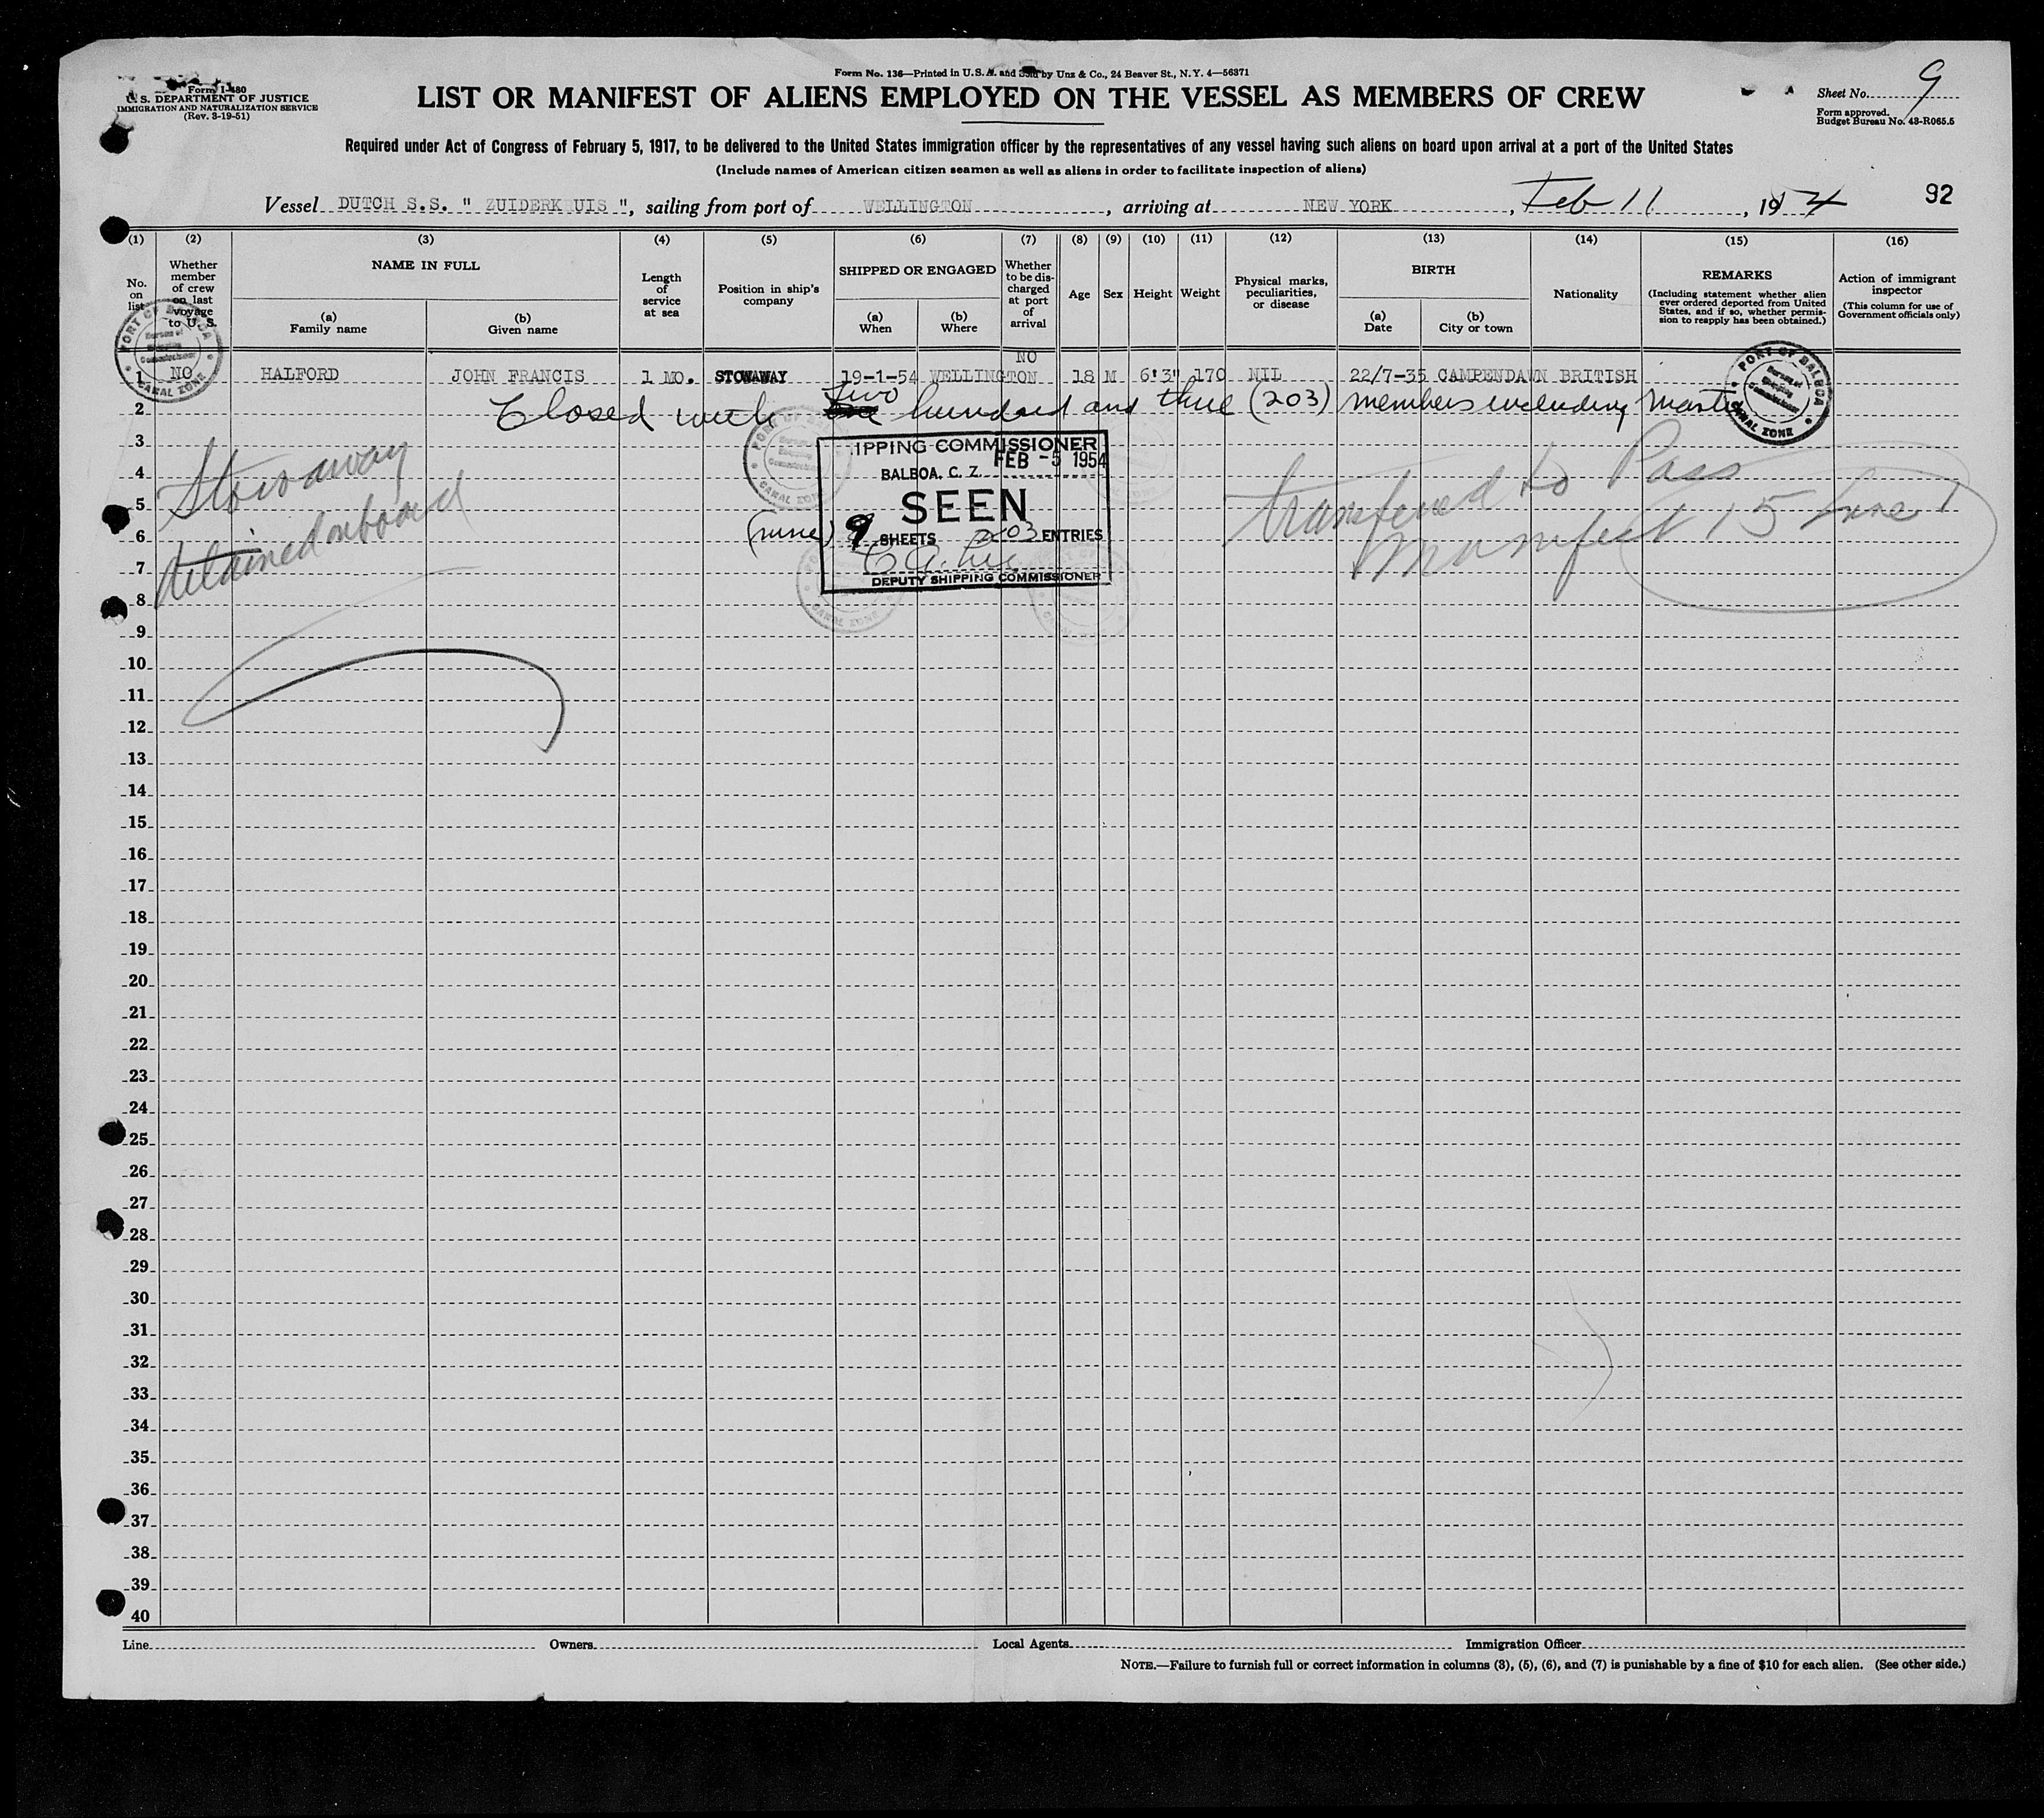 Form No. 136—Printed in U.S.A. and Sold by Unz & Co., 24 Beaver St., N.Y. 4—56371
Form I-480
U. S. DEPARTMENT OF JUSTICE
IMMIGRATION AND NATURALIZATION SERVICE
(Rev. 3-19-51)
LIST OR MANIFEST OF ALIENS EMPLOYED ON THE VESSEL AS MEMBERS OF CREW
Sheet No. 9
Form approved.
Budget Bureau No. 43-R065.5
Required under Act of Congress of February 5, 1917, to be delivered to the United States immigration officer by the representatives of any vessel having such aliens on board upon arrival at a port of the United States
(Include names of American citizen seamen as well as aliens in order to facilitate inspection of aliens)
92
Vessel DUTCH S.S. " ZUIDERKRUIS ", sailing from port of WELLINGTON, arriving at NEW YORK, Feb 11, 1954
(1) (2) (3) (4) (5) (6) (7) (8) (9) (10) (11) (12) (13) (14) (15) (16)
No. on list
Whether member of crew on last voyage to U. S.
NAME IN FULL
(a) Family name
(b) Given name
Length of service at sea
Position in ship's company
SHIPPED OR ENGAGED
(a) When
(b) Where
Whether to be discharged at port of arrival
Age
Sex
Height
Weight
Physical marks, peculiarities, or disease
BIRTH
(a) Date
(b) City or town
Nationality
REMARKS
(Including statement whether alien ever ordered deported from United States, and if so, whether permission to reapply has been obtained.)
Action of immigrant inspector
(This column for use of Government officials only)
NO
1 NO HALFORD JOHN FRANCIS 1 MO. STOWAWAY 19-1-54 WELLINGTON 18 M 6'3" 170 NIL 22/7-35 CAMPENDAWN BRITISH
2 Closed with Two hundred and three (203) members including Master
PORT OF BALBOA
CANAL ZONE
PORT OF BALBOA
CANAL ZONE
Stowaway
detained onboard
IPPING COMMISSIONER
BALBOA, C. Z. FEB -5 1954
SEEN
(nine) 9 SHEETS 203 ENTRIES
DEPUTY SHIPPING COMMISSIONER
transfered to Pass
Manifest 15 Line 1
3
4
5
6
7
8
9
10
11
12
13
14
15
16
17
18
19
20
21
22
23
24
25
26
27
28
29
30
31
32
33
34
35
36
37
38
39
40
Line Owners Local Agents Immigration Officer
NOTE.—Failure to furnish full or correct information in columns (3), (5), (6), and (7) is punishable by a fine of $10 for each alien. (See other side.)